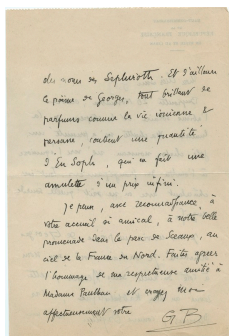 des noms des Sephiroth. Et d'ailleurs
le poème de Georges, tout brillant de
parfums comme la vie ionienne &
persane, contient une quantité
d'En Soph, qui en fait une
amulette d'un prix infini.
Je pense, avec reconnaissance, à
votre accueil si amical, à notre belle
promenade dans le parc de Sceaux, au
ciel de la France du Nord. Faites agréer
l'hommage de ma respectueuse amitié à
Madame Paulhan et croyez moi
affectueusement vôtre
G B